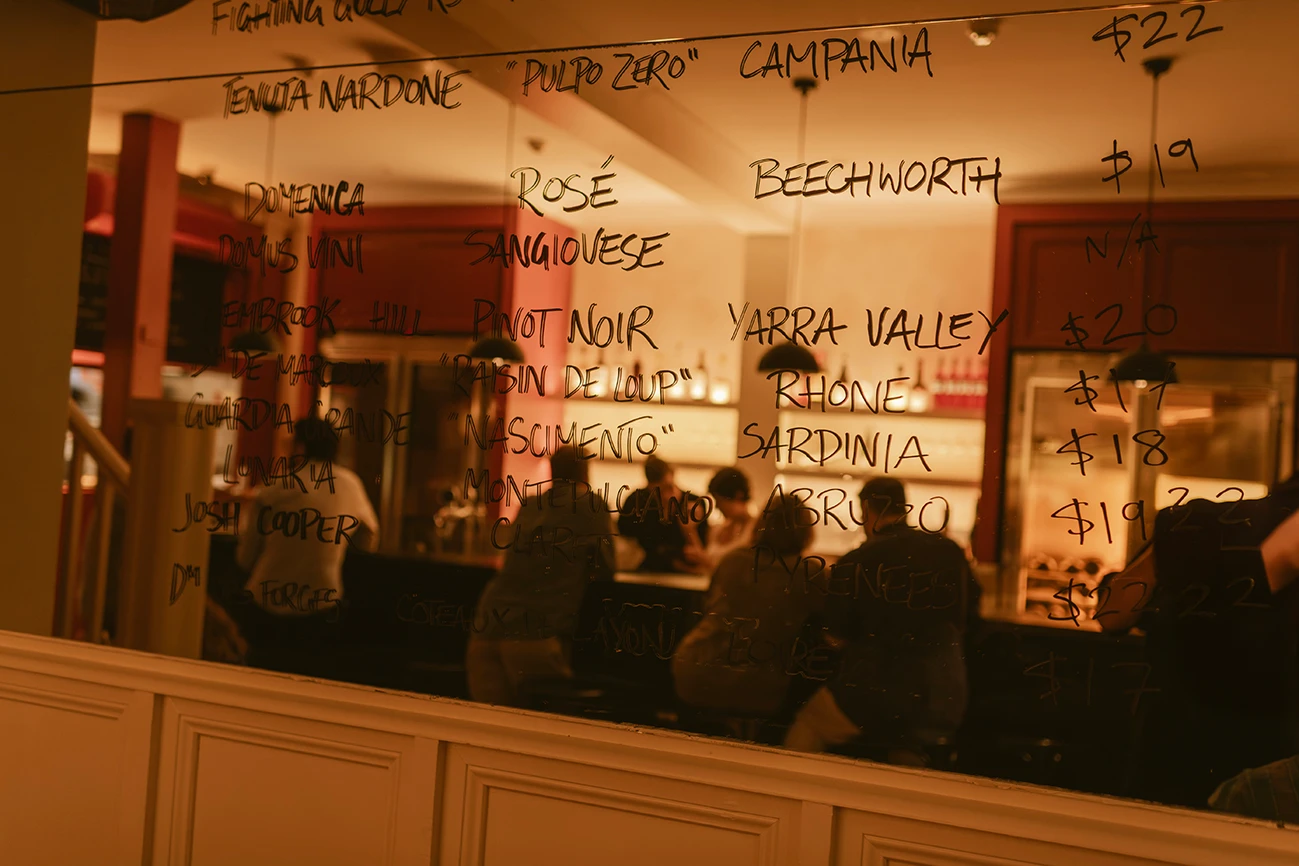 FIGHTING GULLY RD
TENUTA NARDONE "PULPO ZERO" CAMPANIA $22
DOMENICA ROSÉ BEECHWORTH $19
DOMUS VINI SANGIOVESE N/A
EMBROOK HILL PINOT NOIR YARRA VALLEY $20
DE "RAISIN DE LOUP" RHÔNE
GUARDIA GRANDE "NASCIMENTO" SARDINIA $18
LUNARIA MONTEPULCIANO ABRUZZO $19
JOSH COOPER PYRENEES $22
FORGES $17